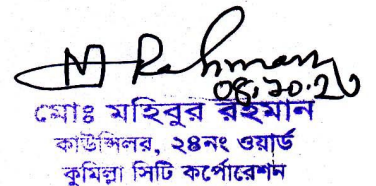 M Rahman
08.10.20
মোঃ মহিবুর রহমান
কাউন্সিলর, ২৪নং ওয়ার্ড
কুমিল্লা সিটি কর্পোরেশন